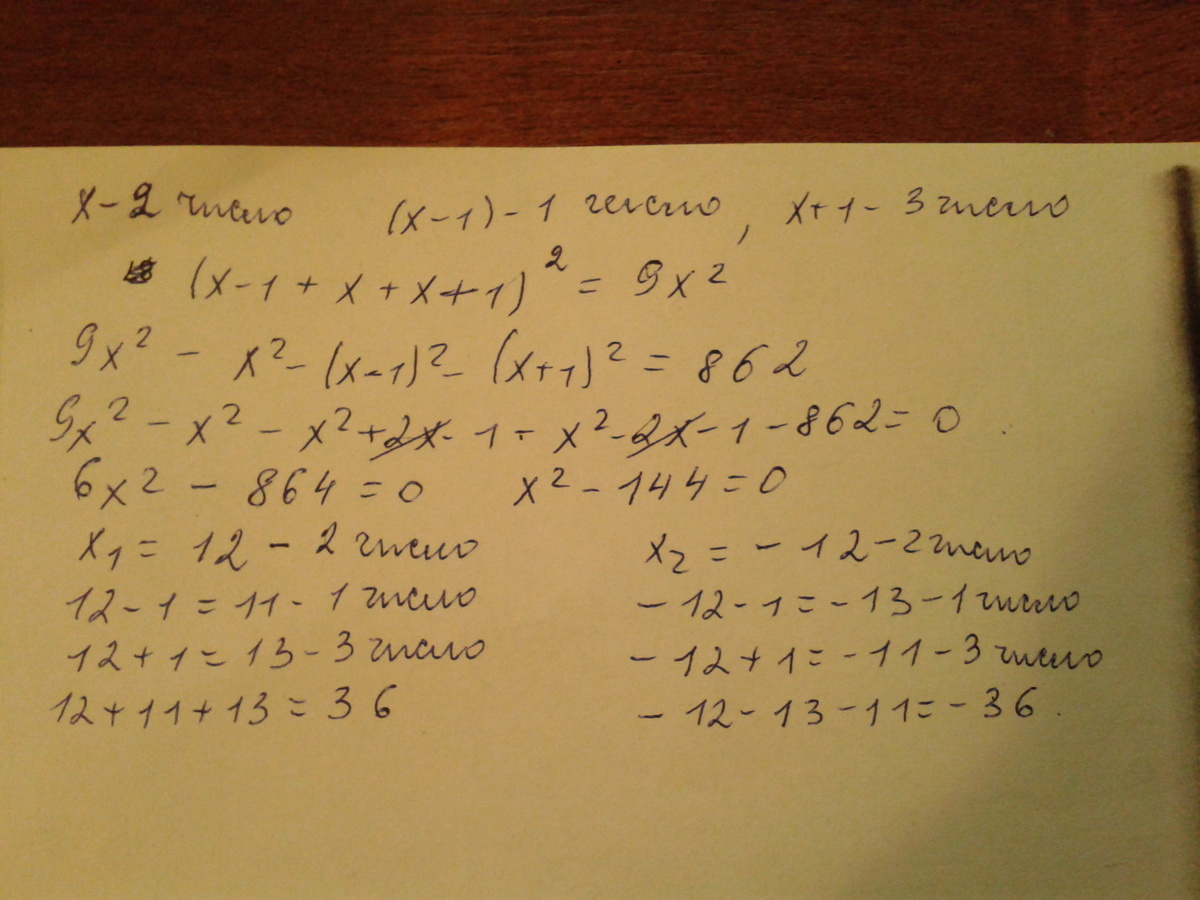 x - 2 число (x-1) - 1 число, x+1 - 3 число
(x-1 + x + x+1)² = 9x²
9x² - x² - (x-1)² - (x+1)² = 862
9x² - x² - x² + 2x - 1 - x² - 2x - 1 - 862 = 0
6x² - 864 = 0 x² - 144 = 0
x₁ = 12 - 2 число x₂ = -12 - 2 число
12 - 1 = 11 - 1 число -12 - 1 = -13 - 1 число
12 + 1 = 13 - 3 число -12 + 1 = -11 - 3 число
12 + 11 + 13 = 36 -12 - 13 - 11 = -36.